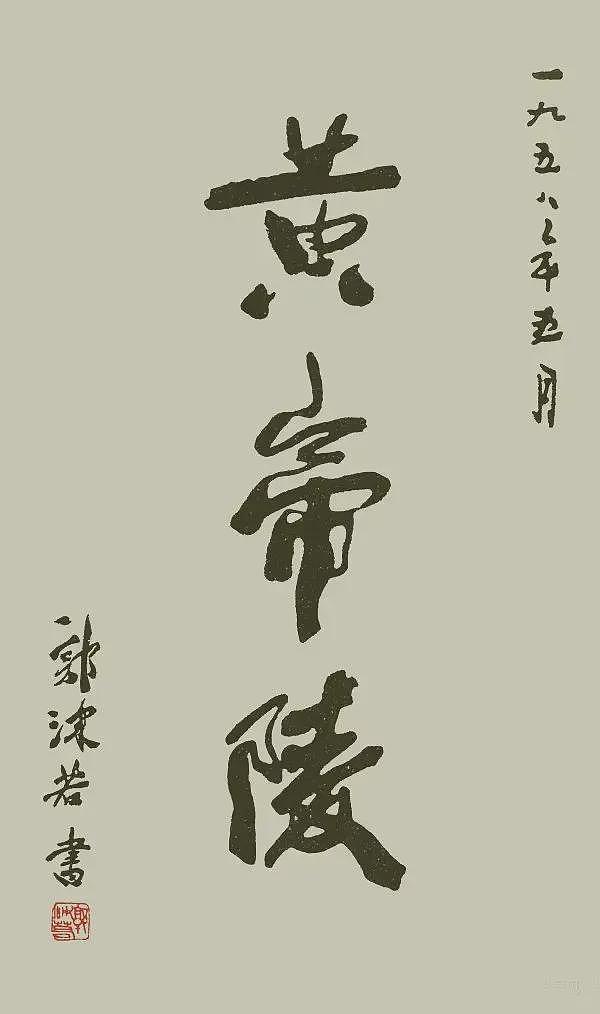 一九五八年五月
黄帝陵
郭沫若書
郭沫若